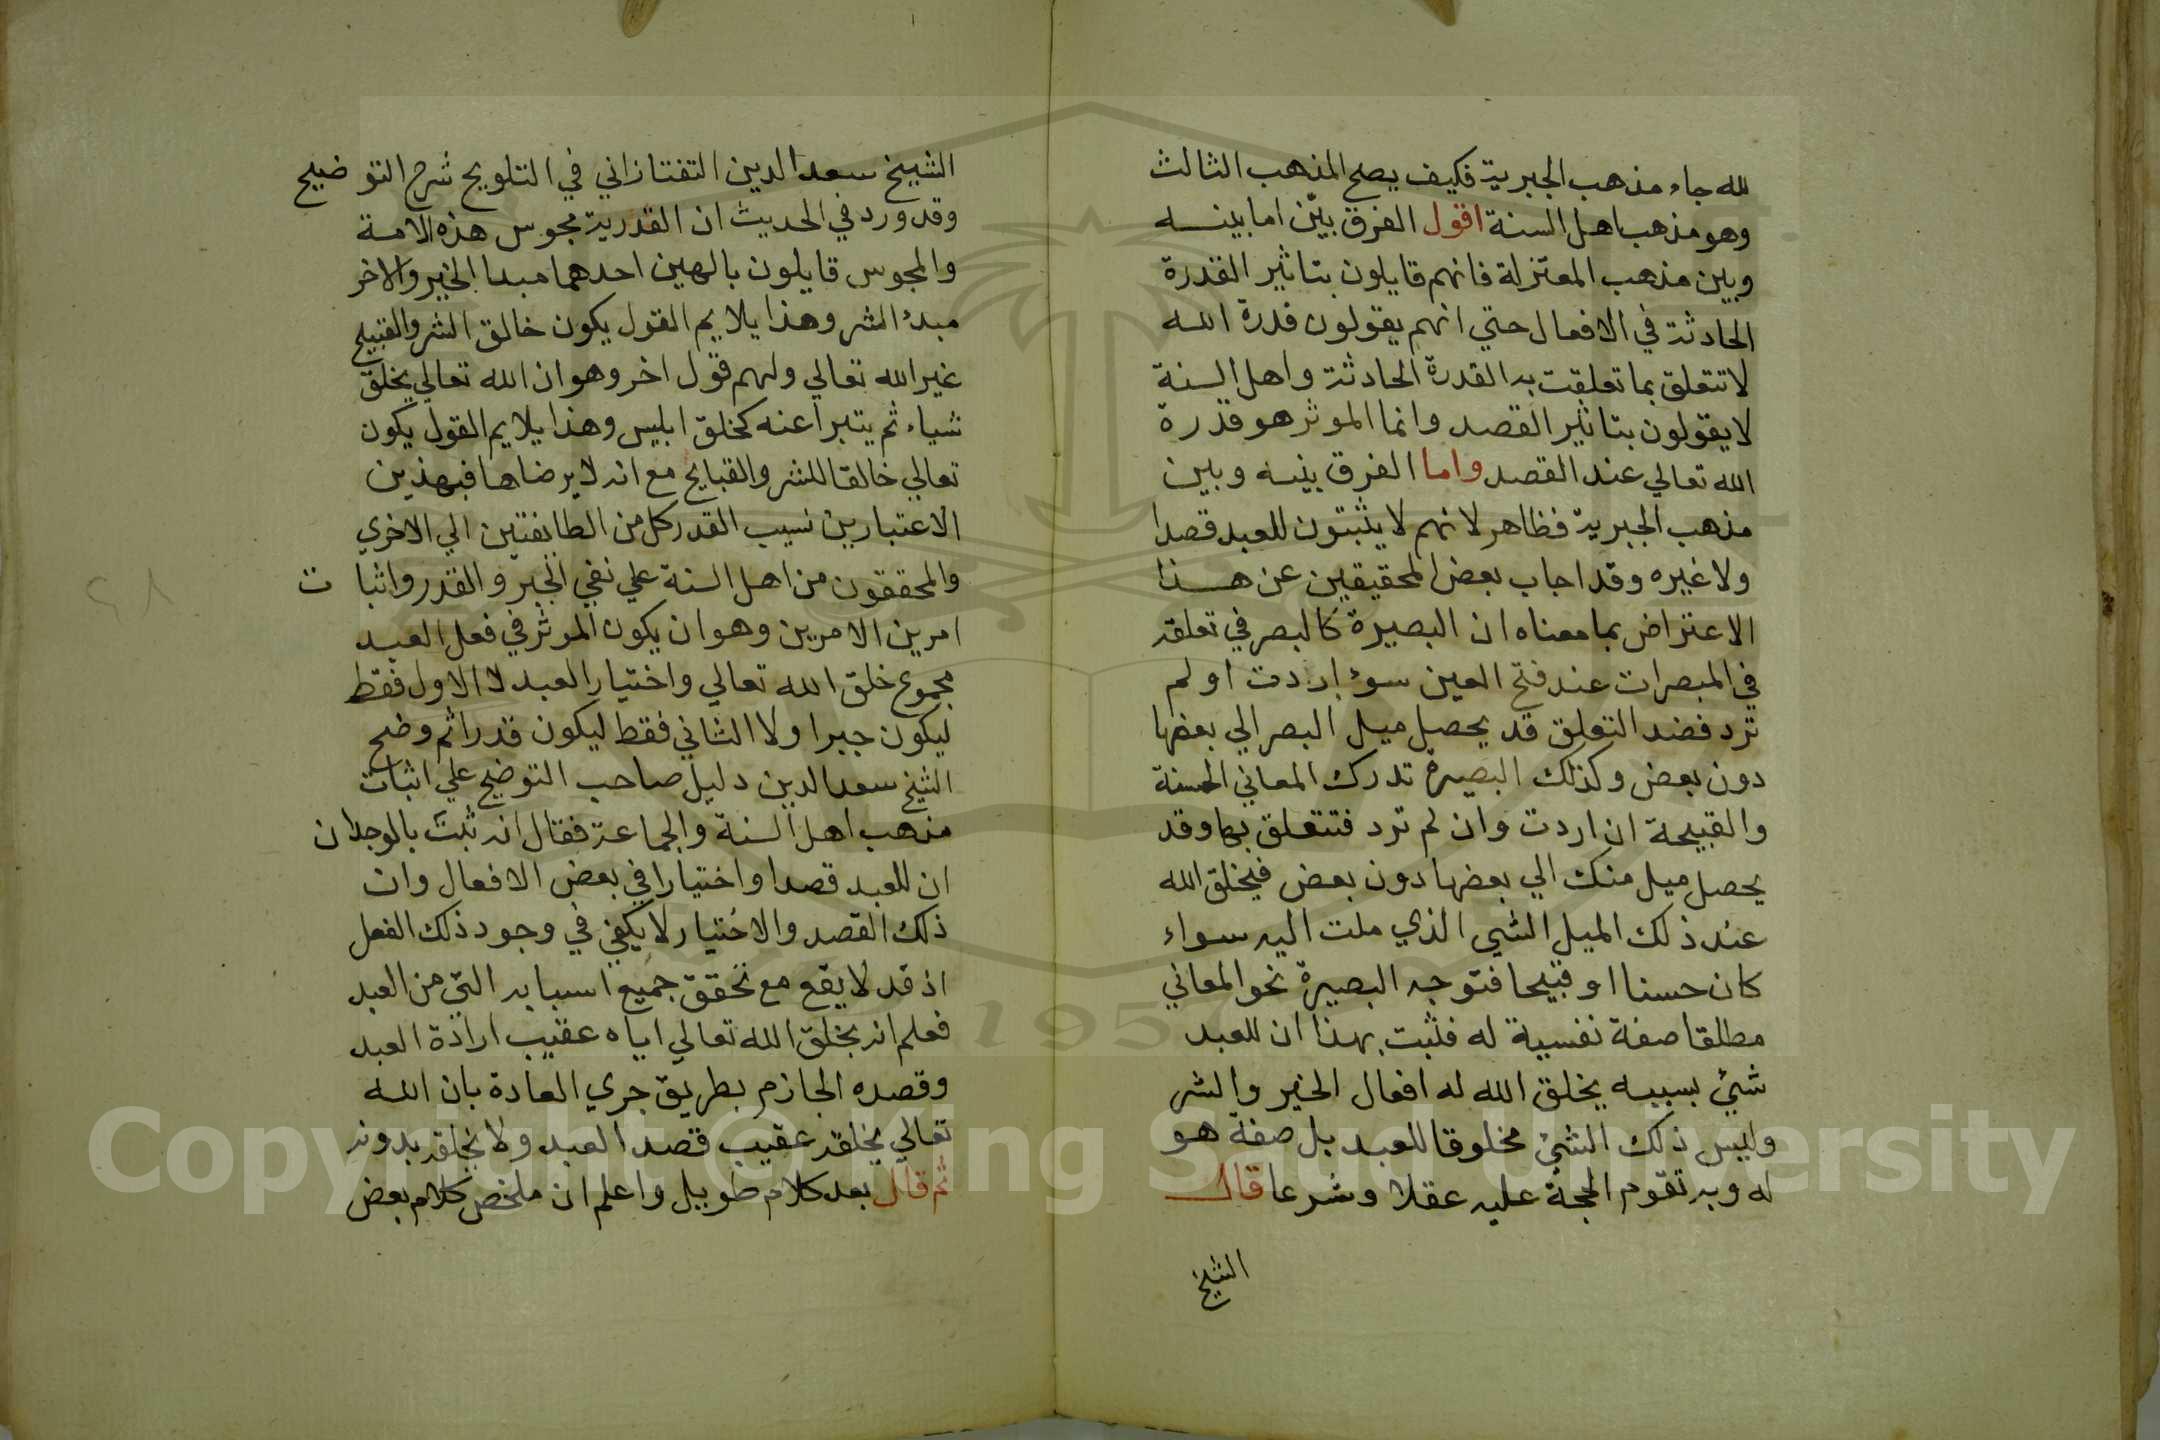 لله جاء مذهب الجبرية فكيف يصح المذهب الثالث
وهو مذهب اهل السنة اقول الفرق بيّن اما بينه
وبين مذهب المعتزلة فانهم قايلون بتاثير القدرة
الحادثة في الافعال حتي انهم يقولون قدرة الله
لا تتعلق بما تعلقت به القدرة الحادثة واهل السنة
لا يقولون بتاثير القصد وانما الموثر هو قدرة
الله تعالي عند القصد واما الفرق بينه وبين
مذهب الجبرية فظاهر لانهم لا يثبتون للعبد قصدا
ولا غيره وقد اجاب بعض المحقيقين عن هذا
الاعتراض بما معناه ان البصيرة كالبصر في تعلقه
في المبصرات عند فتح العين سوء اردت او لم
ترد فضد التعلق قد يحصل ميل البصر الي بعضها
دون بعض وكذلك البصيرة تدرك المعاني الحسنة
والقبيحة ان اردت وان لم ترد فتتعلق بها وقد
يحصل ميل منك الي بعضها دون بعض فيخلق الله
عند ذلك الميل الشي الذي ملت اليه سواء
كان حسنا او قبيحا فتوجه البصيرة نحو المعاني
مطلقا صفة نفسية له فثبت بهذا ان للعبد
شيئ بسببه يخلق الله له افعال الخير والشر
وليس ذلك الشئ مخلوقا للعبد بل صفة هو
له وبه تقوم الحجة عليه عقلا وشرعا قال
الشيخ
الشيخ سعد الدين التفتازاني في التلويح شرح التوضيح
وقد ورد في الحديث ان القدرية مجوس هذه الامة
والمجوس قايلون بالهين احدهما مبدا الخير والاخر
مبدء الشر وهذا يلايم القول يكون خالق الشر والقبيح
غير الله تعالي ولهم قول اخر وهو ان الله تعالي يخلق
شياء ثم يتبرا عنه كخلق ابليس وهذا يلايم القول يكون
تعالي خالقا للشر والقبايح مع انه لا يرضاها فبهذين
الاعتبارين نسيب القدر كل من الطايفتين الي الاخري
والمحققون من اهل السنة علي نفي الجبر والقدر واثبات
امرين الامرين وهو ان يكون الموثر في فعل العبد
مجموع خلق الله تعالي واختيار العبد لا الاول فقط
ليكون جبرا ولا الثاني فقط ليكون قدرا ثم وضح
الشيخ سعد الدين دليل صاحب التوضيح علي اثبات
مذهب اهل السنة والجماعة فقال انه ثبت بالوجدان
ان للعبد قصدا واختيارا في بعض الافعال وان
ذلك القصد والاختيار لا يكفي في وجود ذلك الفعل
اذ قد لا يقع مع تحقق جميع اسبابه التي من العبد
فعلم انه بخلق الله تعالي اياه عقيب ارادة العبد
وقصده الجازم بطريق جري العادة بان الله
تعالي يخلقه عقيب قصد العبد ولا يخلقه بدونه
ثم قال بعد كلام طويل واعلم ان ملخص كلام بعض
٢٨
1957
Copyright © King Saud University